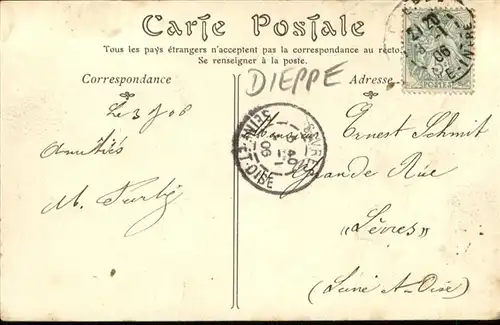 Carte Postale
Tous les pays étrangers n'acceptent pas la correspondance au recto.
Se renseigner à la poste.
Correspondance
DIEPPE
Adresse
POSTES
SEINE-ET-OISE
06
Le 3 J 06
Amitiés
M.
Monsieur Ernest Schmit
Grande Rüe
"Sèvres"
(Seine &-Oise)